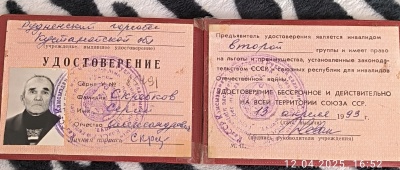 Рудненский горсобес
Кустанайской обл
(учреждение, выдавшее удостоверение)
УДОСТОВЕРЕНИЕ
Серия
Фамилия
Имя
Отчество Александрович
Личная подпись
Предъявитель удостоверения является инвалидом
второй группы и имеет право
на льготы и преимущества, установленные законода-
тельством СССР и союзных республик для инвалидов
Отечественной войны.
УДОСТОВЕРЕНИЕ БЕССРОЧНОЕ И ДЕЙСТВИТЕЛЬНО
НА ВСЕЙ ТЕРРИТОРИИ СОЮЗА ССР.
13 апреля 1993 г.
12.04.2025 16:52